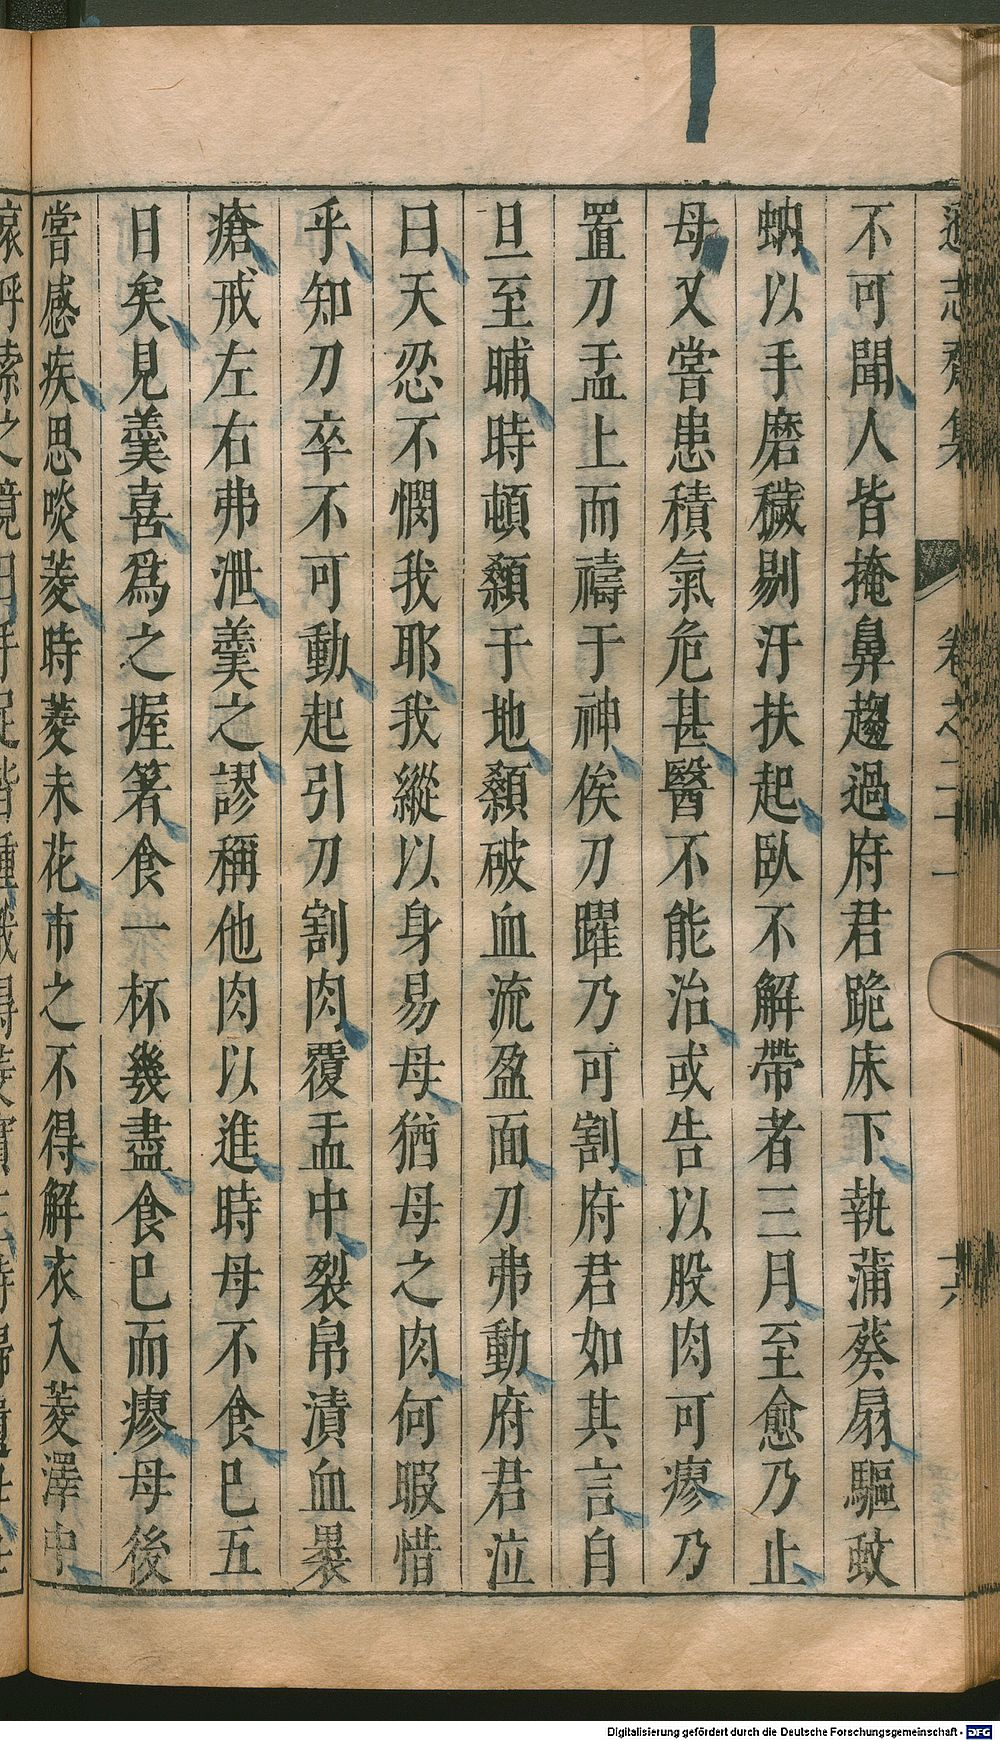 遜志齋集 卷之二十一 十六
不可聞人皆掩鼻趨過府君跪床下執蒲葵扇驅蚊
蚋以手磨穢剔汙扶起臥不解帶者三月至愈乃止
母又嘗患積氣危甚醫不能治或告以股肉可瘳乃
置刀盂上而禱于神俟刀躍乃可割府君如其言自
旦至晡時頓顙于地顙破血流盈面刀弗動府君泣
曰天忍不憫我耶我縱以身易母猶母之肉何暇惜
乎知刀卒不可動起引刀割肉覆盂中裂帛漬血裹
瘡戒左右弗泄羹之謬稱他肉以進時母不食巳五
日矣見羹喜爲之握箸食一杯幾盡食巳而瘳母後
嘗感疾思啖菱時菱未花市之不得解衣入菱澤中
Digitalisierung gefördert durch die Deutsche Forschungsgemeinschaft - DFG